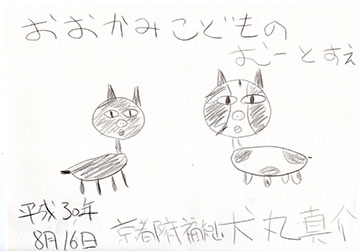 おおかみこどもの
むーとすえ
平成30年
8月16日
京都府福知山犬丸真介